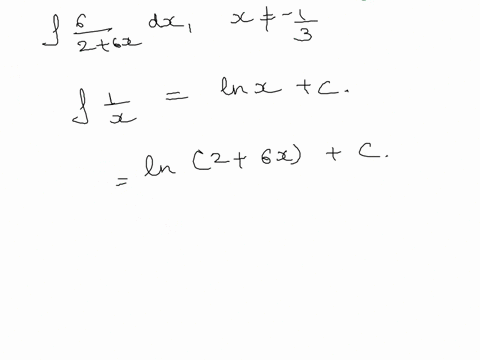 ∫ 6/(2+6x) dx, x ≠ -1/3
∫ 1/x = ln x + c.
= ln (2 + 6x) + C.